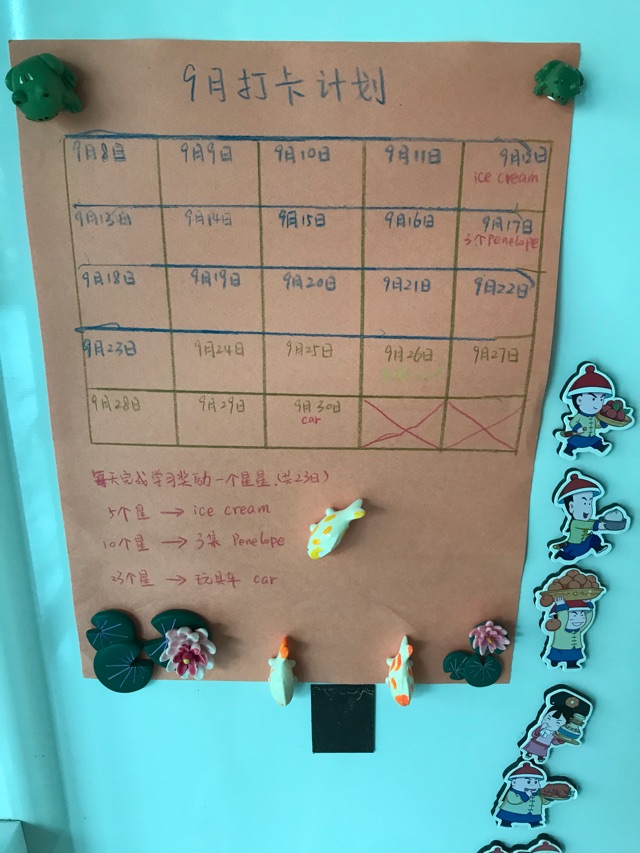 9月打卡计划
9月8日 9月9日 9月10日 9月11日 9月12日
ice cream
9月13日 9月14日 9月15日 9月16日 9月17日
3个Penelope
9月18日 9月19日 9月20日 9月21日 9月22日
9月23日 9月24日 9月25日 9月26日 9月27日
9月28日 9月29日 9月30日
car
每天完成学习奖励一个星星.(共23日)
5个星 → ice cream
10个星 → 3集 Penelope
23个星 → 玩具车 car